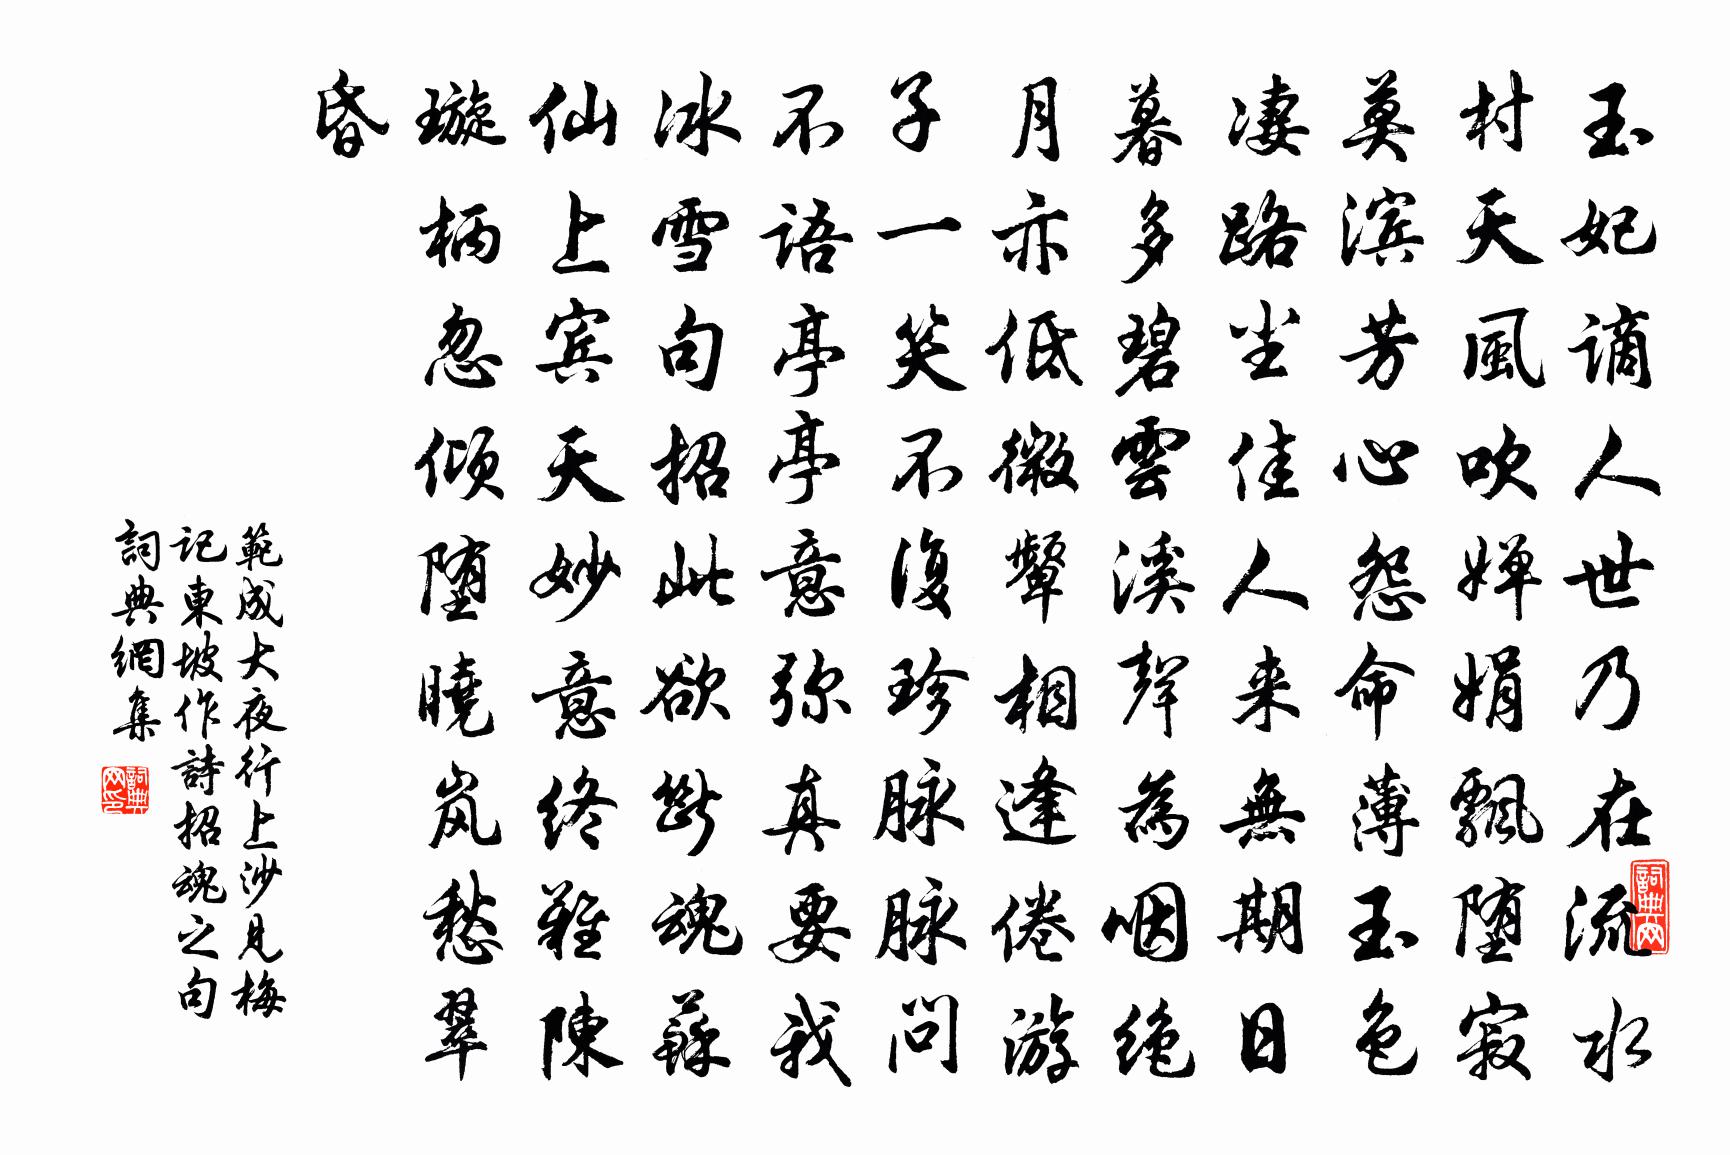 玉妃谪人世乃在流水
村天風吹婵娟飄堕寂
莫滨芳心怨命薄玉色
凄路尘佳人来無期日
暮多碧雲溪聲為咽绝
月亦低微颦相逢倦游
子一笑不復珍脉脉问
不语亭亭意弥真要我
冰雪句招此欲断魂蘇
仙上宾天妙意终難陳
璇柄忽倾堕曉岚愁翠
昏
範成大夜行上沙見梅
記東坡作詩招魂之句
詞典網集
詞典网
詞典网印